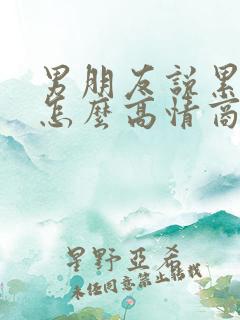 男朋友说累
怎麽高情商
星野亚希
未经同意禁止转载